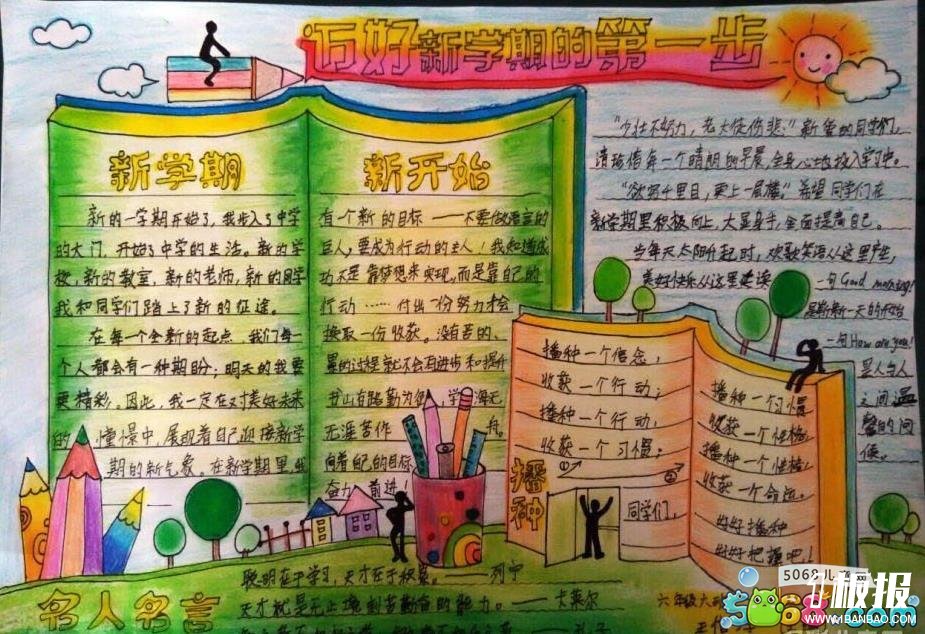 迈好新学期的第一步
新学期
新的一学期开始了,我步入了中学
的大门,开始了中学的生活。新的学
校,新的教室,新的老师,新的同学
我和同学们踏上了新的征途。
在每一个全新的起点,我们每一
个人都会有一种期盼:明天的我要
更精彩。因此,我一定在对美好未来
的憧憬中,展现着自己迎接新学
期的新气象。在新学期里,我
新开始
有一个新的目标——不要做语言的
巨人,要成为行动的主人!我知道成
功不是靠梦想来实现,而是靠自己的
行动……付出一份努力才会
换取一份收获。没有苦的、
累的过程就不会有进步和提升
书山有路勤为径,学海无
无涯苦作舟。
向着自己的目标
奋力前进!
“少壮不努力,老大徒伤悲”新堡的同学们,
请珍惜每一个晴朗的早晨,全身心地投入学习中。
“欲穷千里目,更上一层楼”。希望同学们在
新学期里积极向上,大显身手,全面提高自己。
当每天太阳升起时,欢歌笑语从这里产生,
美好快乐从这里建读
一句Good morning!
是崭新一天的开始
一句How are you!
是人与人
之间温
馨的问
候。
播种
播种一个信念,
收获一个行动;
播种一个行动,
收获一个习惯;
①
②
同学们,
播种一个习惯
收获一个性格,
播种一个性格,
收获一个命运。
好好播种
好好把握吧!
名人名言
聪明在于学习,天才在于积累。——列宁
天才就是无止境刻苦勤奋的能力。——卡莱尔
5068儿童网
板报
WWW.41BANBAO.COM